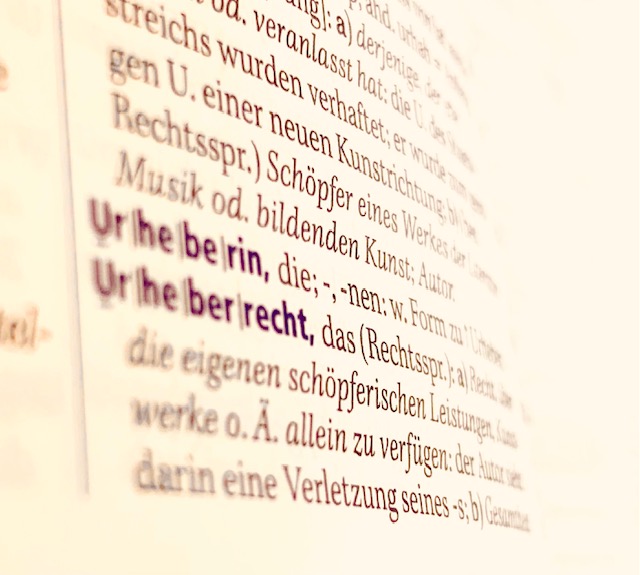 ung]: a) derjenige, der
od. veranlasst hat: die U. des
streichs wurden verhaftet; er wurde zum
gen U. einer neuen Kunstrichtung; b)
Rechtsspr.) Schöpfer eines Werkes der
Musik od. bildenden Kunst; Autor.
Ur|he|be|rin, die; -, -nen: w. Form zu ↑Urheber
Ur|he|ber|recht, das (Rechtsspr.): a) Recht, über
die eigenen schöpferischen Leistungen, Kunst
werke o. Ä. allein zu verfügen: der Autor sieht
darin eine Verletzung seines -s; b) Gesamtheit